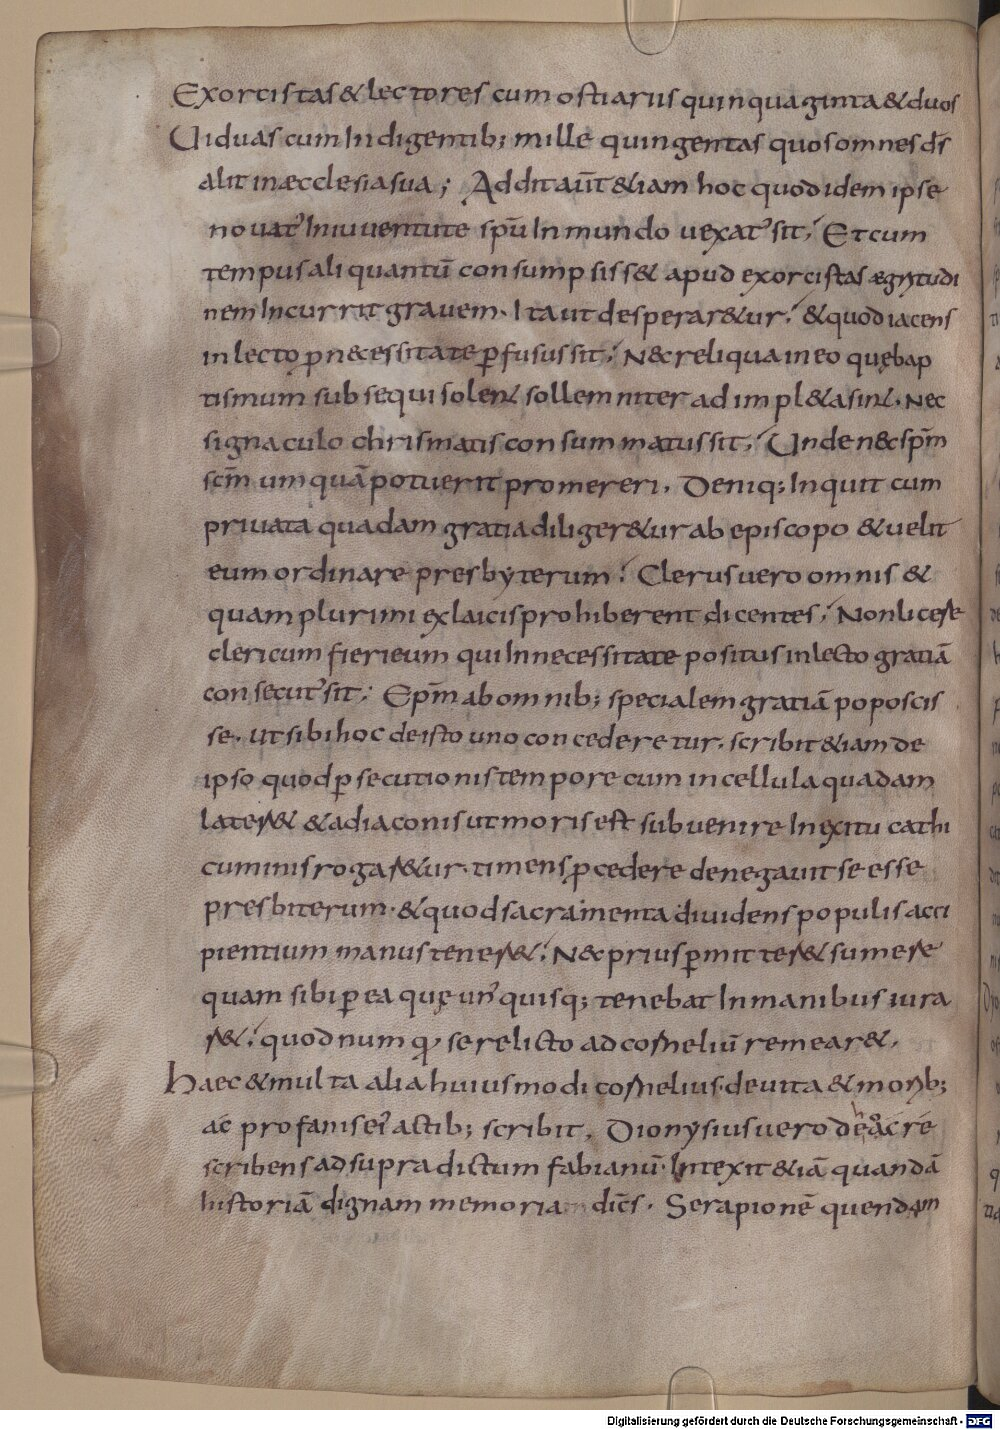 Exorcistas & lectores cum ostiariis quinquaginta & duos
Uiduas cum Indigentib; mille quingentas quos omnes d̄s
alit in æcclesia sua; Addit aūt &iam hoc quod idem ipse
nouat' In iuuentute sp̄u Inmundo uexat' sit; Et cum
tempus aliquantū consumpsiss& apud exorcistas ægritudi
nem Incurrit grauem. Ita ut desperar&ur; & quod iacens
in lecto p̱ n&cessitate p̱fusus sit; N&c reliqua in eo quę bap
tismum subsequi solent sollemniter adimpl&a sint. Nec
signaculo chrismatis consummatus sit; Unde n&c sp̄m
sc̄m umquā potuerit promereri. Deniq; Inquit cum
priuata quadam gratia diliger&ur ab episcopo & uelit
eum ordinare presbyterum; Clerus uero omnis &
quam plurimi ex laicis prohiberent dicentes; Non licere
clericum fieri eum qui In necessitate positus in lecto gratiā
consecut' sit; Ep̄m ab omnib; specialem gratiā poposcis
se. ut sibi hoc de isto uno concederetur. scribit &iam de
ipso quod p̱secutionis tempore cum in cellula quadam
later& & a diaconis ut moris est subuenire In exitu cathi
cuminis rogar&ur. timens p̱cedere denegauit se esse
presbiterum. & quod sacramenta diuidens populis acci
pientium manus tener&; N&c prius p̱mitter& sumere
quam sibi p̱ ea quę un' quisq; tenebat In manibus iura
r&; quod numq' se relicto ad cornelium remear&.
Haec & multa alia huiusmodi cornelius. de uita & morib;
ac profanis ei' actib; scribit. Dionysius uero de hac re
scribens ad supradictum fabianū. Intexit &iā quandā
historiā dignam memoria dic̄s. Serapionē quendam
Digitalisierung gefördert durch die Deutsche Forschungsgemeinschaft - DFG